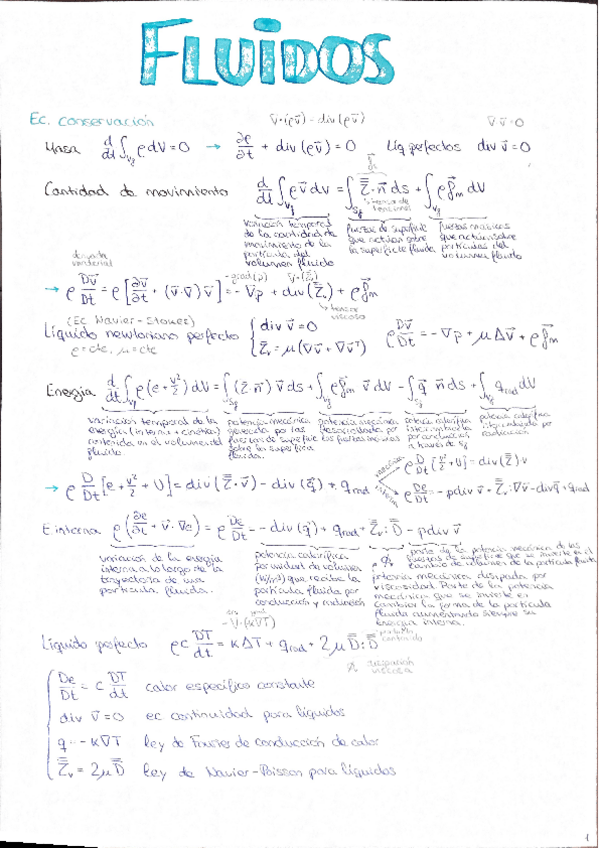 FLUIDOS
Ec. conservación ∇·(ρv⃗) = div(ρv⃗) ∇·v⃗=0
Masa d/dt ∫_Vf ρ dV = 0 → ∂ρ/∂t + div(ρv⃗) = 0 Líq perfectos div v⃗ = 0
Cantidad de movimiento d/dt ∫_Vf ρv⃗ dV = ∫_Sf Σ·n⃗ ds + ∫_Vf ρf⃗m dV
variación temporal de la cantidad de movimiento de la partícula del volumen fluido
fuerzas de superficie que actúan sobre la superficie fluida
fuerzas másicas que actúan sobre partículas del volumen fluido
derivada material
→ ρ Dv⃗/Dt = ρ[∂v⃗/∂t + (v⃗·∇)v⃗] = -∇p + div(Σv) + ρf⃗m
tensor viscoso
(Ec Navier-Stokes)
Líquido newtoniano perfecto { div v⃗ = 0 ρ Dv⃗/Dt = -∇p + μΔv⃗ + ρf⃗m
ρ=cte, μ=cte Σv = μ(∇v⃗ + ∇v⃗ᵀ)
Energía d/dt ∫_Vf ρ(e + v²/2) dV = ∫_Sf (Σ·n⃗) v⃗ ds + ∫_Vf ρf⃗m v⃗ dV - ∫_Sf q⃗ n⃗ ds + ∫_Vf q_rad dV
variación temporal de la energía (interna + cinética) contenida en el volumen del fluido
potencia mecánica generada por las fuerzas de superficie sobre la superficie fluida.
potencia mecánica desarrollada por las fuerzas másicas
potencia calorífica intercambiada por conducción a través de Sf
potencia calorífica intercambiada por radiación
→ ρ D/Dt [e + v²/2 + U] = div(Σ·v⃗) - div(q⃗) + q_rad
mecánica ρ D/Dt (v²/2 + U) = div(Σ) v
interna ρ De/Dt = -p div v⃗ + Σv:∇v⃗ - div q⃗ + q_rad
E. interna ρ(∂e/∂t + v⃗·∇e) = ρ De/Dt = - div(q⃗) + q_rad + Σv:D - p div v⃗
variación de la energía interna a lo largo de la trayectoria de una partícula fluida.
potencia calorífica por unidad de volumen que recibe la partícula fluida por conducción y radiación
parte de la potencia mecánica de las fuerzas de superficie que se invierte en el cambio de volumen de la partícula fluida
potencia mecánica disipada por viscosidad. Parte de la potencia mecánica que se invierte en cambiar la forma de la partícula fluida aumentando siempre su energía interna.
-∇·(K∇T)
Líquido perfecto ρc DT/dt = KΔT + q_rad + 2μ D:D
producto contraído
∅ disipación viscosa
De/Dt = c DT/dt calor específico constante
div v⃗ = 0 ec continuidad para líquidos
q = -K∇T ley de Fourier de conducción de calor
Σv = 2μD ley de Navier-Poisson para líquidos
1